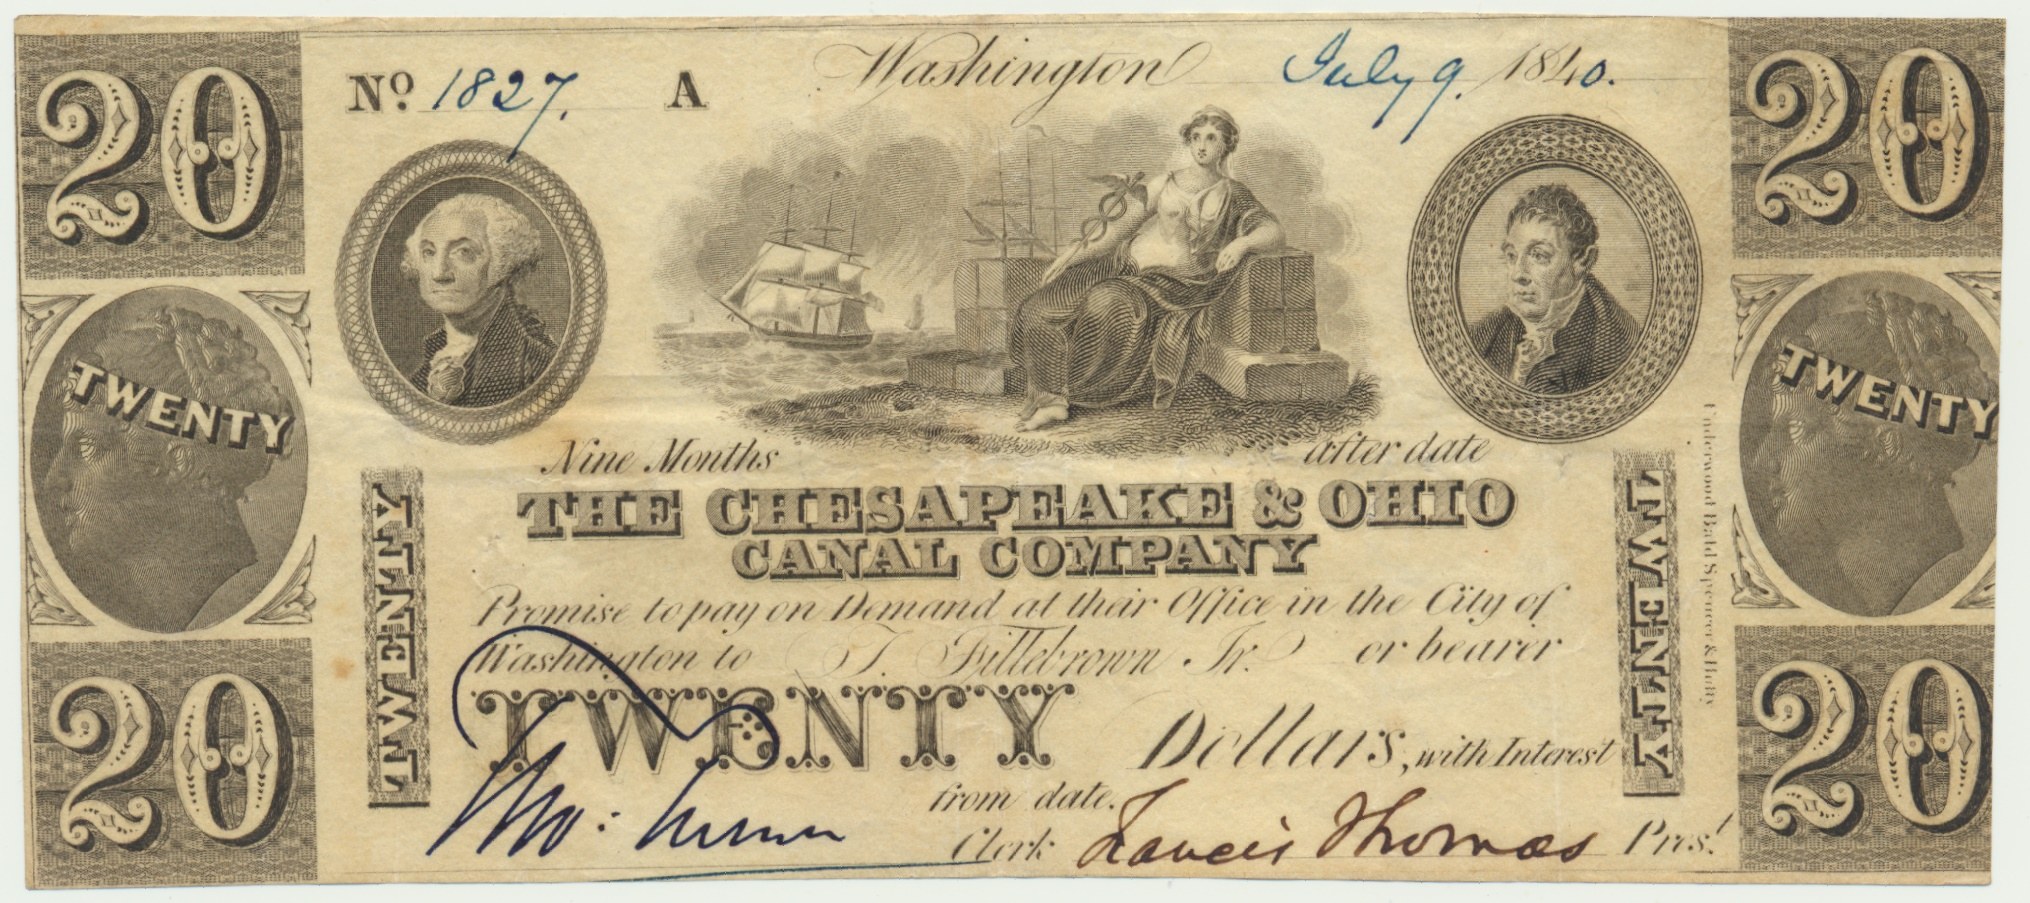 20 Nº 1827. A Washington July 9. 1840. 20
TWENTY TWENTY
Nine Months after date
THE CHESAPEAKE & OHIO
CANAL COMPANY
Promise to pay on Demand at their Office in the City of
Washington to T. Fillebrown Jr. or bearer
TWENTY Dollars, with Interest
from date.
Tho: Turner Clerk Francis Thomas Prest.
TWENTY TWENTY
Underwood Bald Spencer & Hufty
20 20